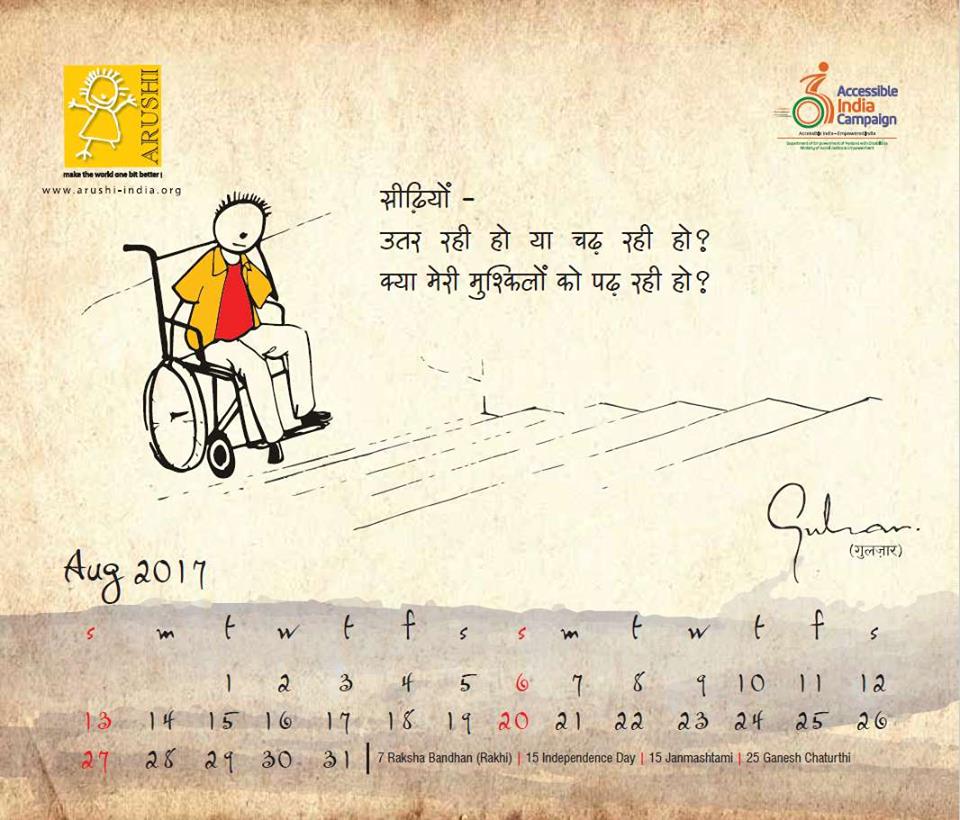 ARUSHI
make the world one bit better!
www.arushi-india.org
Accessible
India
Campaign
Accessible India - Empowered India
Department of Empowerment of Persons with Disabilities
Ministry of Social Justice & Empowerment
सीढ़ियों -
उतर रही हो या चढ़ रही हो?
क्या मेरी मुश्किलों को पढ़ रही हो?
Gulzar.
(गुलज़ार)
Aug 2017
s m t w t f s s m t w t f s
1 2 3 4 5 6 7 8 9 10 11 12
13 14 15 16 17 18 19 20 21 22 23 24 25 26
27 28 29 30 31 | 7 Raksha Bandhan (Rakhi) | 15 Independence Day | 15 Janmashtami | 25 Ganesh Chaturthi